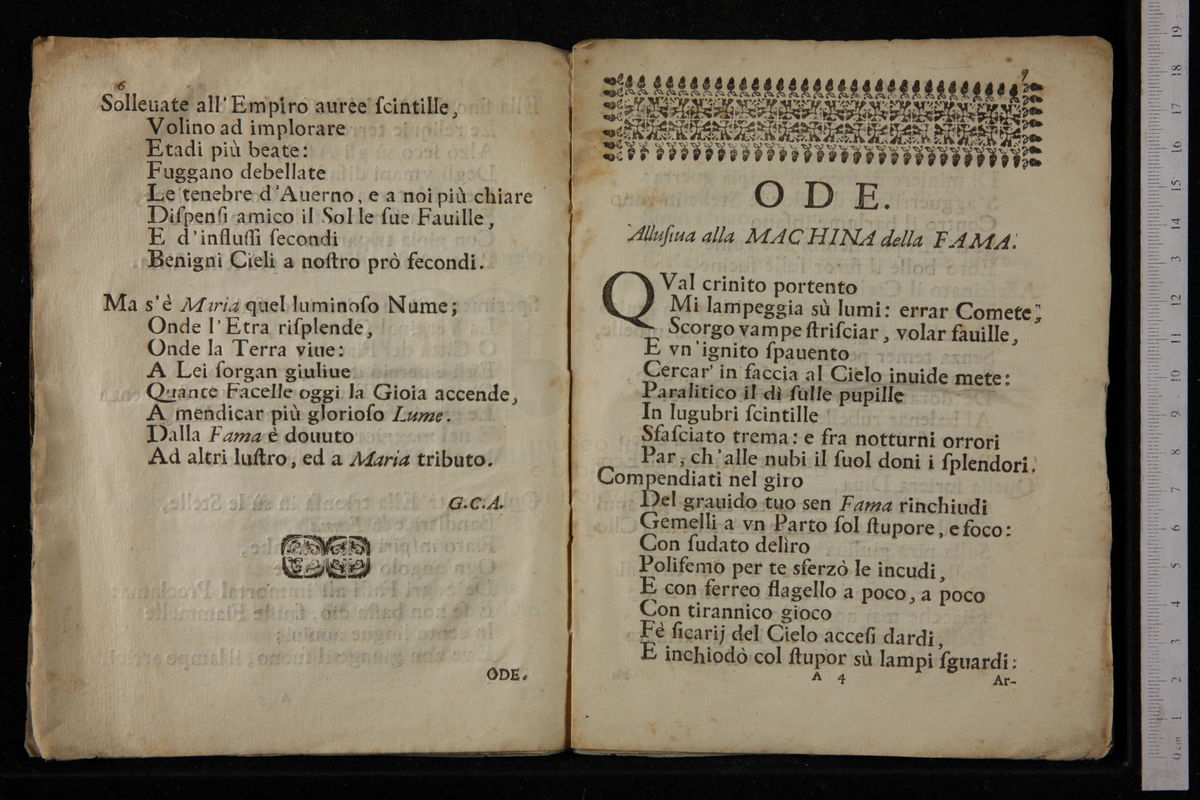 6
Solleuate all'Empiro auree ſcintille,
Volino ad implorare
Etadi più beate:
Fuggano debellate
Le tenebre d'Auerno, e a noi più chiare
Diſpenſi amico il Sol le ſue Fauille,
E d'influſſi fecondi
Benigni Cieli a noſtro prò fecondi.
Ma s'è Maria quel luminoſo Nume;
Onde l'Etra riſplende,
Onde la Terra viue:
A Lei ſorgan giuliue
Quante Facelle oggi la Gioia accende,
A mendicar più glorioſo Lume.
Dalla Fama è douuto
Ad altri luſtro, ed a Maria tributo.
G.C.A.
ODE.
7
ODE.
Alluſiua alla MACHINA della FAMA.
QVal crinito portento
Mi lampeggia sù lumi: errar Comete,
Scorgo vampe ſtriſciar, volar fauille,
E vn'ignito ſpauento
Cercar' in faccia al Cielo inuide mete:
Paralitico il dì ſulle pupille
In lugubri ſcintille
Sfaſciato trema: e fra notturni orrori
Par, ch'alle nubi il ſuol doni i ſplendori.
Compendiati nel giro
Del grauido tuo sen Fama rinchiudi
Gemelli a vn Parto ſol ſtupore, e foco:
Con ſudato delìro
Polifemo per te sferzò le incudi,
E con ferreo flagello a poco, a poco
Con tirannico gioco
Fè ſicarij del Cielo acceſi dardi,
E inchiodò col ſtupor sù lampi ſguardi:
A 4
Ar-
0 cm 1 2 3 4 5 6 7 8 9 10 11 12 13 14 15 16 17 18 19